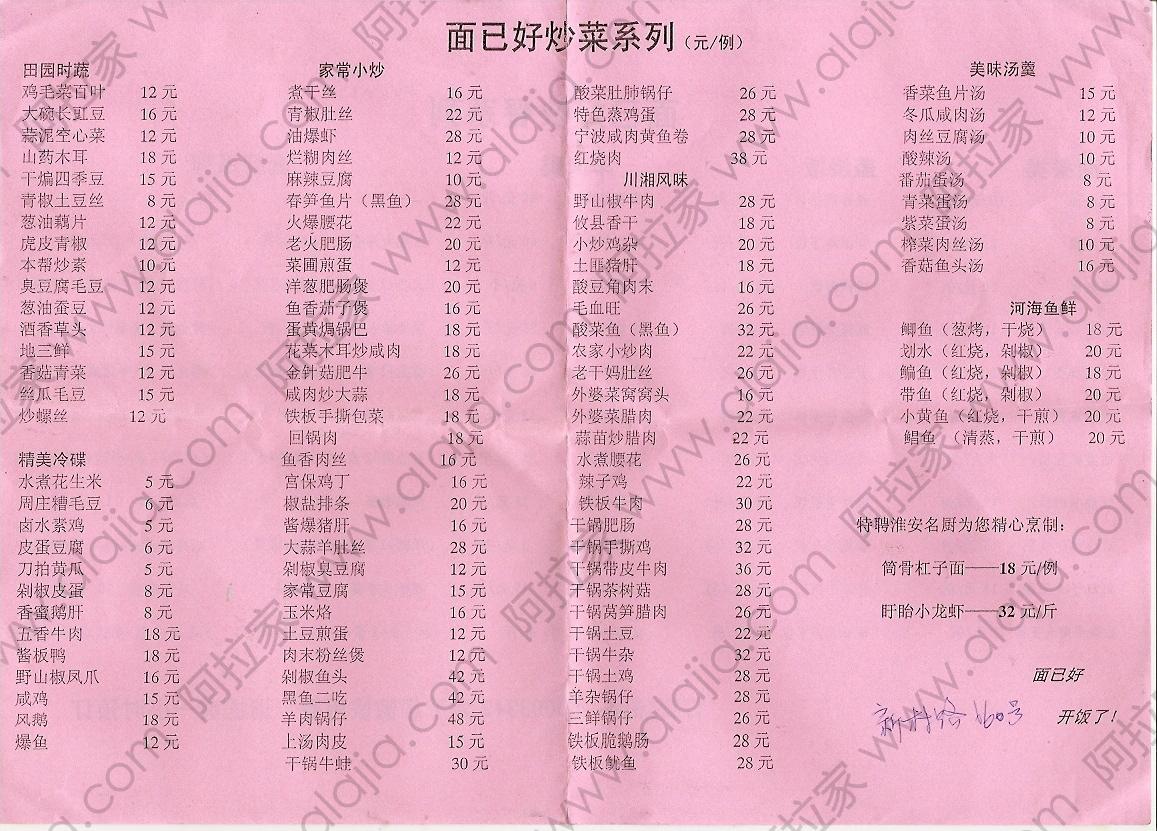 面已好炒菜系列（元/例）
田园时蔬
鸡毛菜百叶 12 元
大碗长豇豆 16 元
蒜泥空心菜 12 元
山药木耳 18 元
干煸四季豆 15 元
青椒土豆丝 8 元
葱油藕片 12 元
虎皮青椒 12 元
本帮炒素 10 元
臭豆腐毛豆 12 元
葱油蚕豆 12 元
酒香草头 12 元
地三鲜 15 元
香菇青菜 12 元
丝瓜毛豆 15 元
炒螺丝 12 元
精美冷碟
水煮花生米 5 元
周庄糟毛豆 6 元
卤水素鸡 5 元
皮蛋豆腐 6 元
刀拍黄瓜 5 元
剁椒皮蛋 8 元
香蜜鹅肝 8 元
五香牛肉 18 元
酱板鸭 18 元
野山椒凤爪 16 元
咸鸡 15 元
风鹅 18 元
爆鱼 12 元
家常小炒
煮干丝 16 元
青椒肚丝 22 元
油爆虾 28 元
烂糊肉丝 12 元
麻辣豆腐 10 元
春笋鱼片（黑鱼） 28 元
火爆腰花 22 元
老火肥肠 20 元
菜圃煎蛋 12 元
洋葱肥肠煲 20 元
鱼香茄子煲 16 元
蛋黄焗锅巴 18 元
花菜木耳炒咸肉 18 元
金针菇肥牛 26 元
咸肉炒大蒜 18 元
铁板手撕包菜 18 元
回锅肉 18 元
鱼香肉丝 16 元
宫保鸡丁 16 元
椒盐排条 20 元
酱爆猪肝 16 元
大蒜羊肚丝 28 元
剁椒臭豆腐 12 元
家常豆腐 15 元
玉米烙 16 元
土豆煎蛋 12 元
肉末粉丝煲 12 元
剁椒鱼头 42 元
黑鱼二吃 42 元
羊肉锅仔 48 元
上汤肉皮 15 元
干锅牛蛙 30 元
酸菜肚肺锅仔 26 元
特色蒸鸡蛋 28 元
宁波咸肉黄鱼卷 28 元
红烧肉 38 元
川湘风味
野山椒牛肉 28 元
攸县香干 18 元
小炒鸡杂 20 元
土匪猪肝 18 元
酸豆角肉末 16 元
毛血旺 26 元
酸菜鱼（黑鱼） 32 元
农家小炒肉 22 元
老干妈肚丝 26 元
外婆菜窝窝头 16 元
外婆菜腊肉 22 元
蒜苗炒腊肉 22 元
水煮腰花 26 元
辣子鸡 22 元
铁板牛肉 30 元
干锅肥肠 28 元
干锅手撕鸡 32 元
干锅带皮牛肉 36 元
干锅茶树菇 28 元
干锅莴笋腊肉 26 元
干锅土豆 22 元
干锅牛杂 32 元
干锅土鸡 28 元
羊杂锅仔 28 元
三鲜锅仔 26 元
铁板脆鹅肠 28 元
铁板鱿鱼 28 元
美味汤羹
香菜鱼片汤 15 元
冬瓜咸肉汤 12 元
肉丝豆腐汤 10 元
酸辣汤 10 元
番茄蛋汤 8 元
青菜蛋汤 8 元
紫菜蛋汤 8 元
榨菜肉丝汤 10 元
香菇鱼头汤 16 元
河海鱼鲜
鲫鱼（葱烤，干烧） 18 元
划水（红烧，剁椒） 20 元
鳊鱼（红烧，剁椒） 18 元
带鱼（红烧，剁椒） 20 元
小黄鱼（红烧，干煎） 20 元
鲳鱼 （清蒸，干煎） 20 元
特聘淮安名厨为您精心烹制：
筒骨杠子面——18 元/例
盱眙小龙虾——32 元/斤
面已好
开饭了！
新村路 160号
阿拉家 www.alajia.com